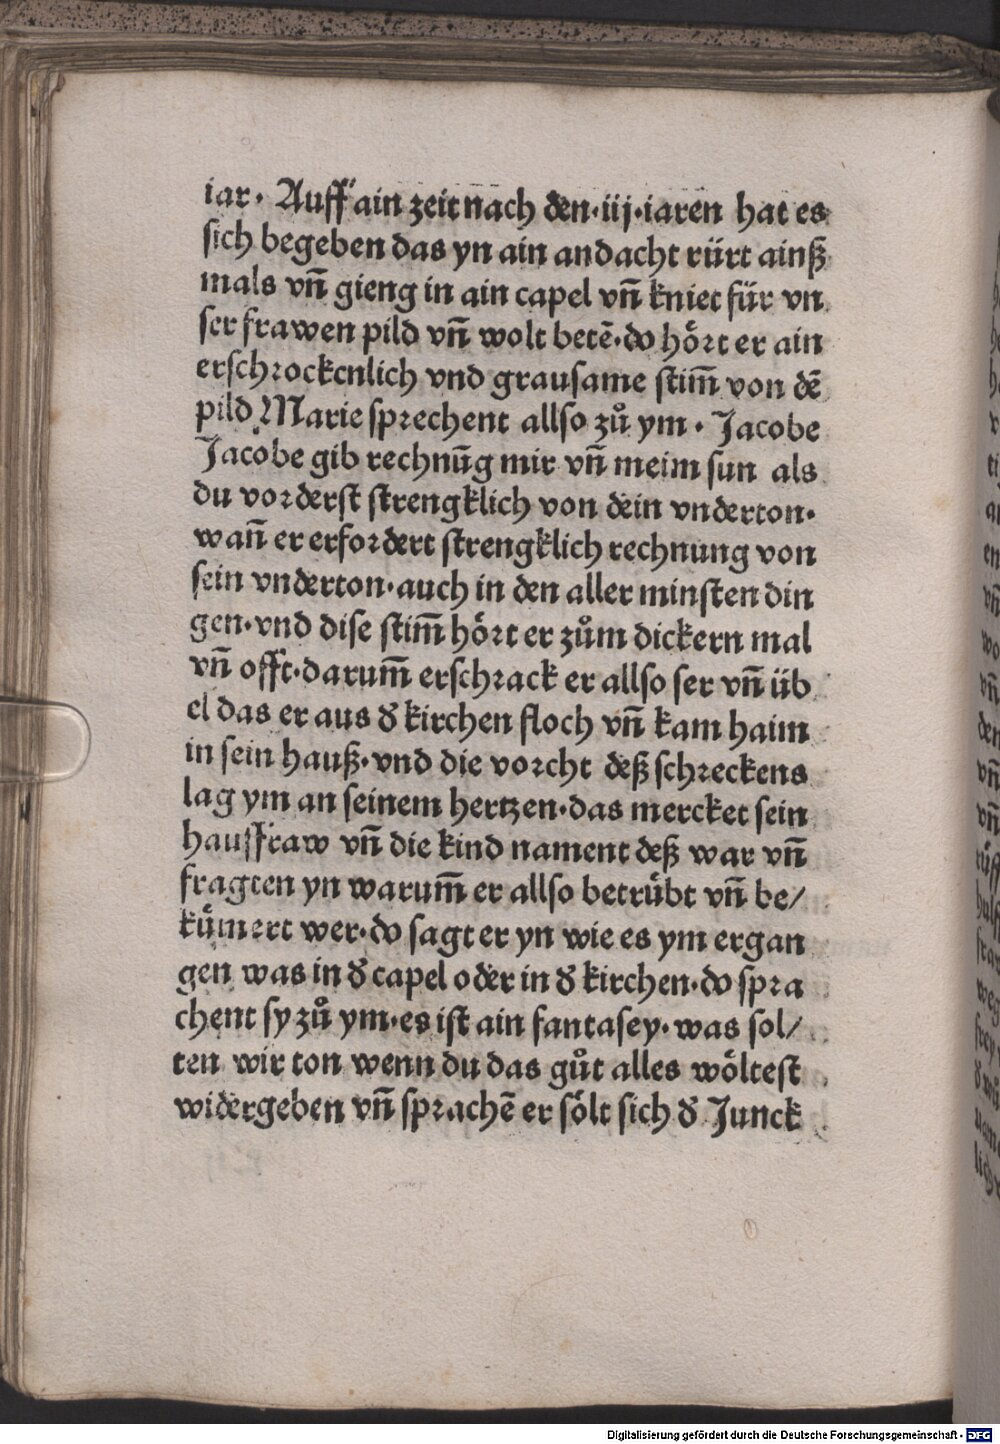 iar· Auff ain zeit nach den·iij·iaren hat es
sich begeben das yn ain andacht rürt ainß
mals vn̄ gieng in ain capel vn̄ kniet für vn
ser frawen pild vn̄ wolt betē·do hört er ain
erschrockenlich vnd grausame stim̄ von dē
pild Marie sprechent allso zů ym· Jacobe
Jacobe gib rechnūg mir vn̄ meim sun als
du vorderst strengklich von dein vnderton·
wan̄ er erfordert strengklich rechnung von
sein vnderton·auch in den aller minsten din
gen·vnd dise stim̄ hört er zům dickern mal
vn̄ offt·darum̄ erschrack er allso ser vn̄ üb
el das er aus d̕ kirchen floch vn̄ kam haim
in sein hauß·vnd die vorcht deß schreckens
lag ym an seinem hertzen·das mercket sein
haussfraw vn̄ die kind nament deß war vn̄
fragten yn warum̄ er allso betrübt vn̄ be/
kümert wer·do sagt er yn wie es ym ergan
gen was in d̕ capel oder in d̕ kirchen·do spra
chent sy zů ym·es ist ain fantasey·was sol/
ten wir ton wenn du das gůt alles wöltest
widergeben vn̄ sprachē er sölt sich d̕ Junck
Digitalisierung gefördert durch die Deutsche Forschungsgemeinschaft · DFG